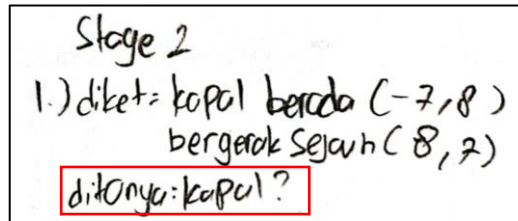 Stage 2
1.) diket = kapal berada (-7,8)
bergerak sejauh (8,7)
ditanya: kapal?